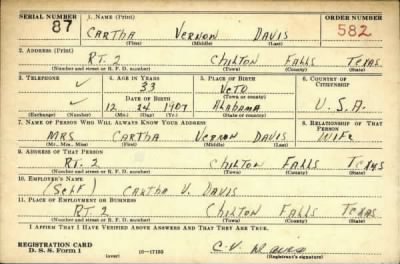 SERIAL NUMBER 1. NAME (Print) ORDER NUMBER
87 CARTHA VERNON DAVIS 582
(First) (Middle) (Last)
2. ADDRESS (Print)
RT. 2 CHILTON FALLS TEXAS
(Number and street or R. F. D. number) (Town) (County) (State)
3. TELEPHONE 4. AGE IN YEARS 5. PLACE OF BIRTH 6. COUNTRY OF CITIZENSHIP
✓ 33 VETO
DATE OF BIRTH (Town or county)
✓ 12 24 1907 ALABAMA U.S.A.
(Exchange) (Number) (Mo.) (Day) (Yr.) (State or country)
7. NAME OF PERSON WHO WILL ALWAYS KNOW YOUR ADDRESS 8. RELATIONSHIP OF THAT PERSON
MRS CARTHA VERNON DAVIS WIFE
(Mr., Mrs., Miss) (First) (Middle) (Last)
9. ADDRESS OF THAT PERSON
RT. 2 CHILTON FALLS TEXAS
(Number and street or R. F. D. number) (Town) (County) (State)
10. EMPLOYER'S NAME
(SELF) CARTHA V. DAVIS
11. PLACE OF EMPLOYMENT OR BUSINESS
RT. 2 CHILTON FALLS TEXAS
(Number and street or R. F. D. number) (Town) (County) (State)
I AFFIRM THAT I HAVE VERIFIED ABOVE ANSWERS AND THAT THEY ARE TRUE.
REGISTRATION CARD
D. S. S. Form 1 16—17105 C. V. Davis
(over) (Registrant's signature)